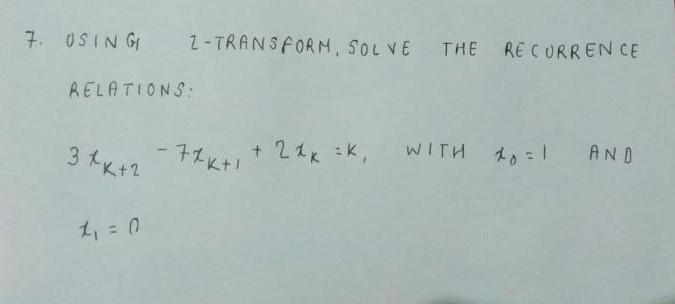 7. USING Z-TRANSFORM, SOLVE THE RECURRENCE
RELATIONS:
3 x_{K+2} - 7x_{K+1} + 2x_K = K, WITH x_0 = 1 AND
x_1 = 0